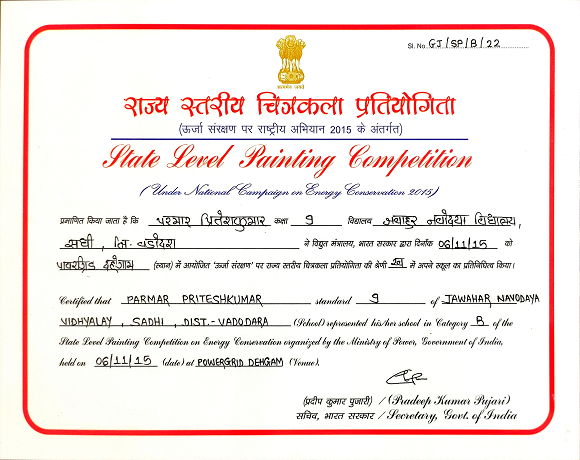 Sl. No. GJ/SP/B/22
सत्यमेव जयते
राज्य स्तरीय चित्रकला प्रतियोगिता
(ऊर्जा संरक्षण पर राष्ट्रीय अभियान 2015 के अंतर्गत)
State Level Painting Competition
(Under National Campaign on Energy Conservation 2015)
प्रमाणित किया जाता है कि परमार प्रितेशकुमार कक्षा 9 विद्यालय जवाहर नवोदया विधालय,
सधी, जि. वडोदरा ने विद्युत मंत्रालय, भारत सरकार द्वारा दिनाँक 06/11/15 को
पावरग्रिड दहेगाम (स्थान) में आयोजित 'ऊर्जा संरक्षण' पर राज्य स्तरीय चित्रकला प्रतियोगिता की श्रेणी में अपने स्कूल का प्रतिनिधित्व किया।
Certified that PARMAR PRITESHKUMAR standard 9 of JAWAHAR NAVODAYA
VIDHYALAY, SADHI, DIST.-VADODARA (School) represented his/her school in Category B of the
State Level Painting Competition on Energy Conservation organized by the Ministry of Power, Government of India,
held on 06/11/15 (date) at POWERGRID DEHGAM (Venue).
(प्रदीप कुमार पुजारी) / (Pradeep Kumar Pujari)
सचिव, भारत सरकार / Secretary, Govt. of India